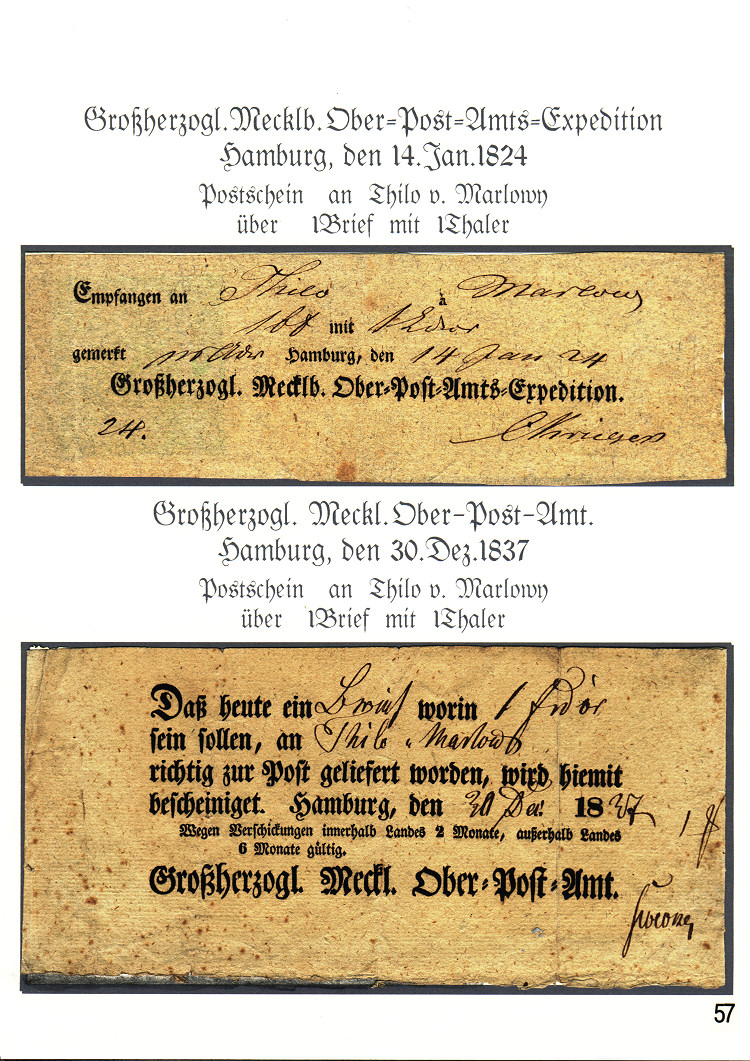 Großherzogl. Mecklb. Ober=Post=Amts=Expedition
Hamburg, den 14. Jan. 1824
Postschein an Thilo v. Marlowy
über 1Brief mit 1Thaler
Empfangen an Thilo à Marlowy
mit
gemerkt Hamburg, den 14 Jan 24
Großherzogl. Mecklb. Ober=Post=Amts=Expedition.
24.
Großherzogl. Meckl. Ober-Post-Amt.
Hamburg, den 30. Dez. 1837
Postschein an Thilo v. Marlowy
über 1Brief mit 1Thaler
Daß heute ein Brief worin 1 Fdor
sein sollen, an Thilo Marlow
richtig zur Post geliefert worden, wird hiemit
bescheiniget. Hamburg, den 30 Dec. 1837
Wegen Verschickungen innerhalb Landes 2 Monate, außerhalb Landes
6 Monate gültig.
Großherzogl. Meckl. Ober=Post=Amt.
57